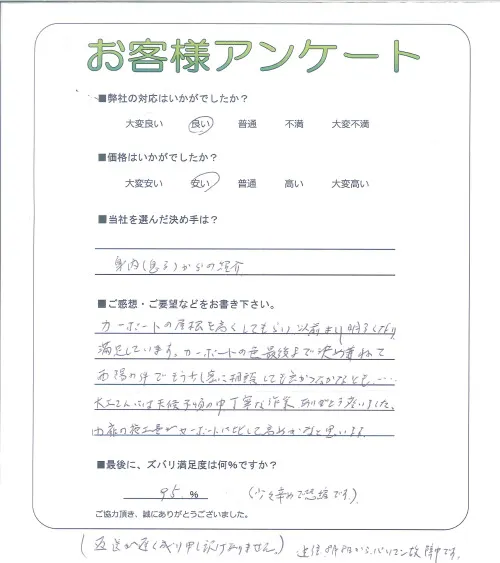 お客様アンケート
■弊社の対応はいかがでしたか？
大変良い 良い 普通 不満 大変不満
■価格はいかがでしたか？
大変安い 安い 普通 高い 大変高い
■当社を選んだ決め手は？
身内(息子)からの紹介
■ご感想・ご要望などをお書き下さい。
カーポートの屋根を高くしてもらい以前より明るくなり
満足しています。カーポートの色最後まで決め兼ねて
の件でもう少し に相談しても良かったかなとも……
大工さんには天候不順の中丁寧な作業ありがとう座いました。
の施工費がカーポートに比して高めかなと思います
■最後に、ズバリ満足度は何％ですか？
95 ％ (少々辛めで恐縮です)
ご協力頂き、誠にありがとうございました。
(返送が遅く成り申し訳けありません。) パソコン故障中です。